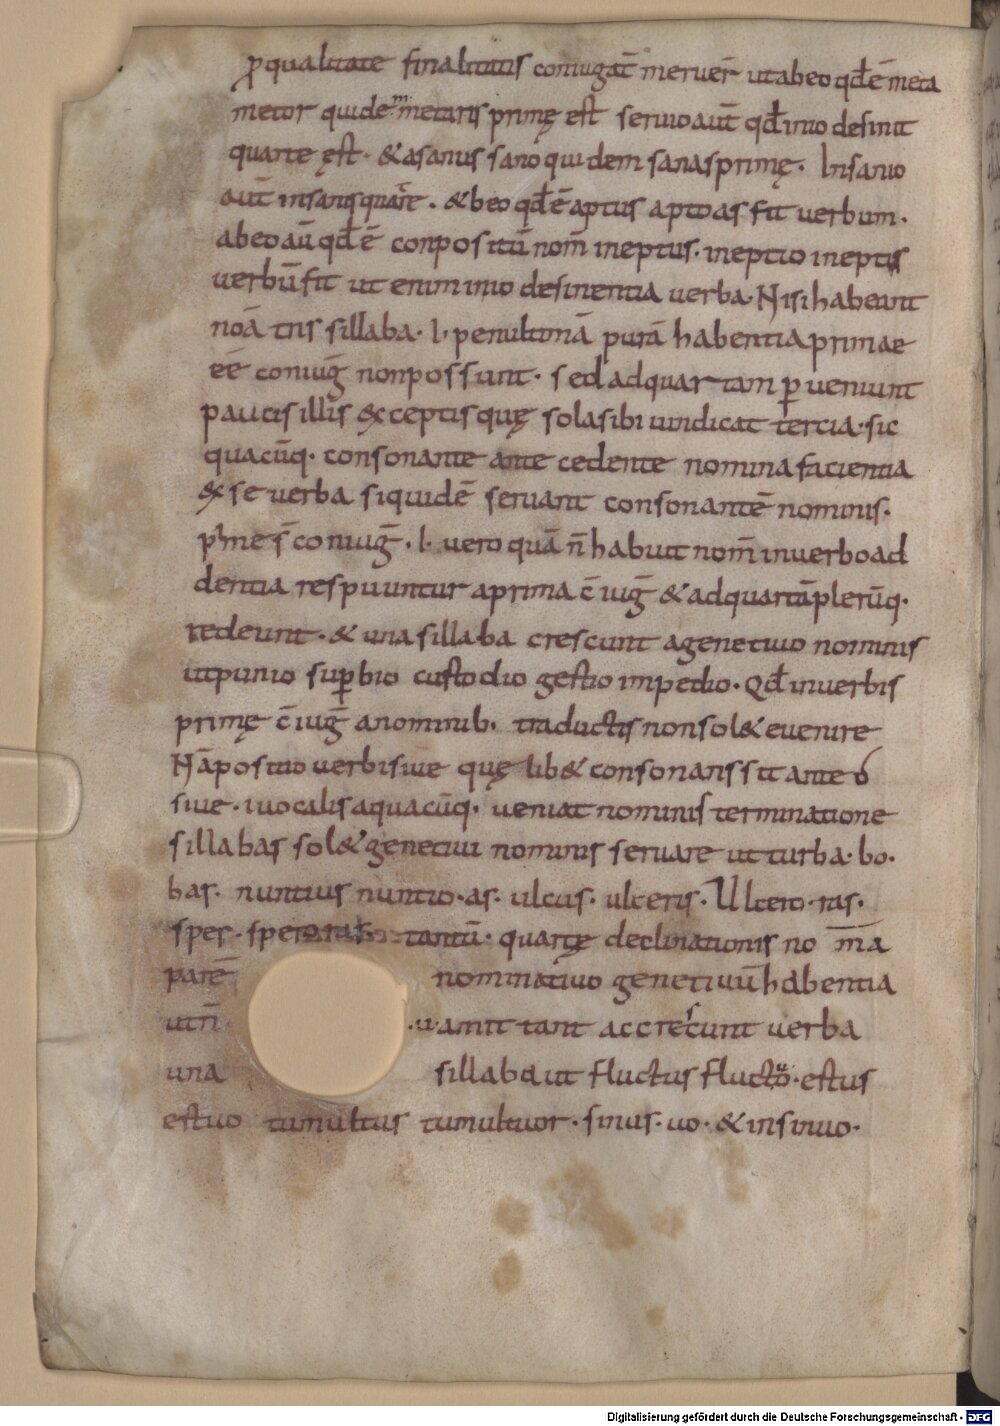 ꝓqualitate finalitatis coniugat̄ meruer̄ utabeo qđē meta
metor quide m̄ metaris primę est seruo aut̄ qđ inio desinit
quarte ęst· &asanus sano quidem sanas primę· Insanio
aut̄ insanis quarte· &beo qđē aptus aptoas fit uerbum·
abeo aū qđē conpositū nom̄ ineptus· ineptio ineptis
uerbū fit ut enim inio desinentia uerba· Nisi habeant
noā tris sillaba· l· penultimā purā habentia primae
eē coniuḡ non possunt· sed adquartam ꝑueniunt
paucis illis exceptis quę sola sibi uindicat tercia· sic
quacūq· consonante ante cedente nomina facientia
ex se uerba siquidē seruant consonantē nominis·
prime s̄ coniuḡ· l· uero quā n̄ habuit nom̄ inuerbo ad
dentia respuuntur aprima c̄iuḡ &adquartā plerūq·
redeunt· & una sillaba crescunt agenetiuo nominis
utpunio suꝑbio custodio gestio impedio· Qđ inuerbis
primę c̄iuḡ anominib· traductis non sol& euenire
Nā positio uerbi siue quę lib& consonans sit ante o
siue· i uocalis aquacūq· ueniat nominis terminatione
sillabas sol& genetiui nominis seruare ut turba· bo·
bas· nuntius nuntio· as· ulcus· ulceris· Ulcero· ras·
sper· spero tantū· quartę declinationis no m̄a
parē nominatiuo genetiuū habentia
utn̄ ·u· amittant accrescunt uerba
una sillaba ut fluctus fluctuo· estus
estuo tumultus tumultuor· sinus· uo· & insinuo·
Digitalisierung gefördert durch die Deutsche Forschungsgemeinschaft - DFG